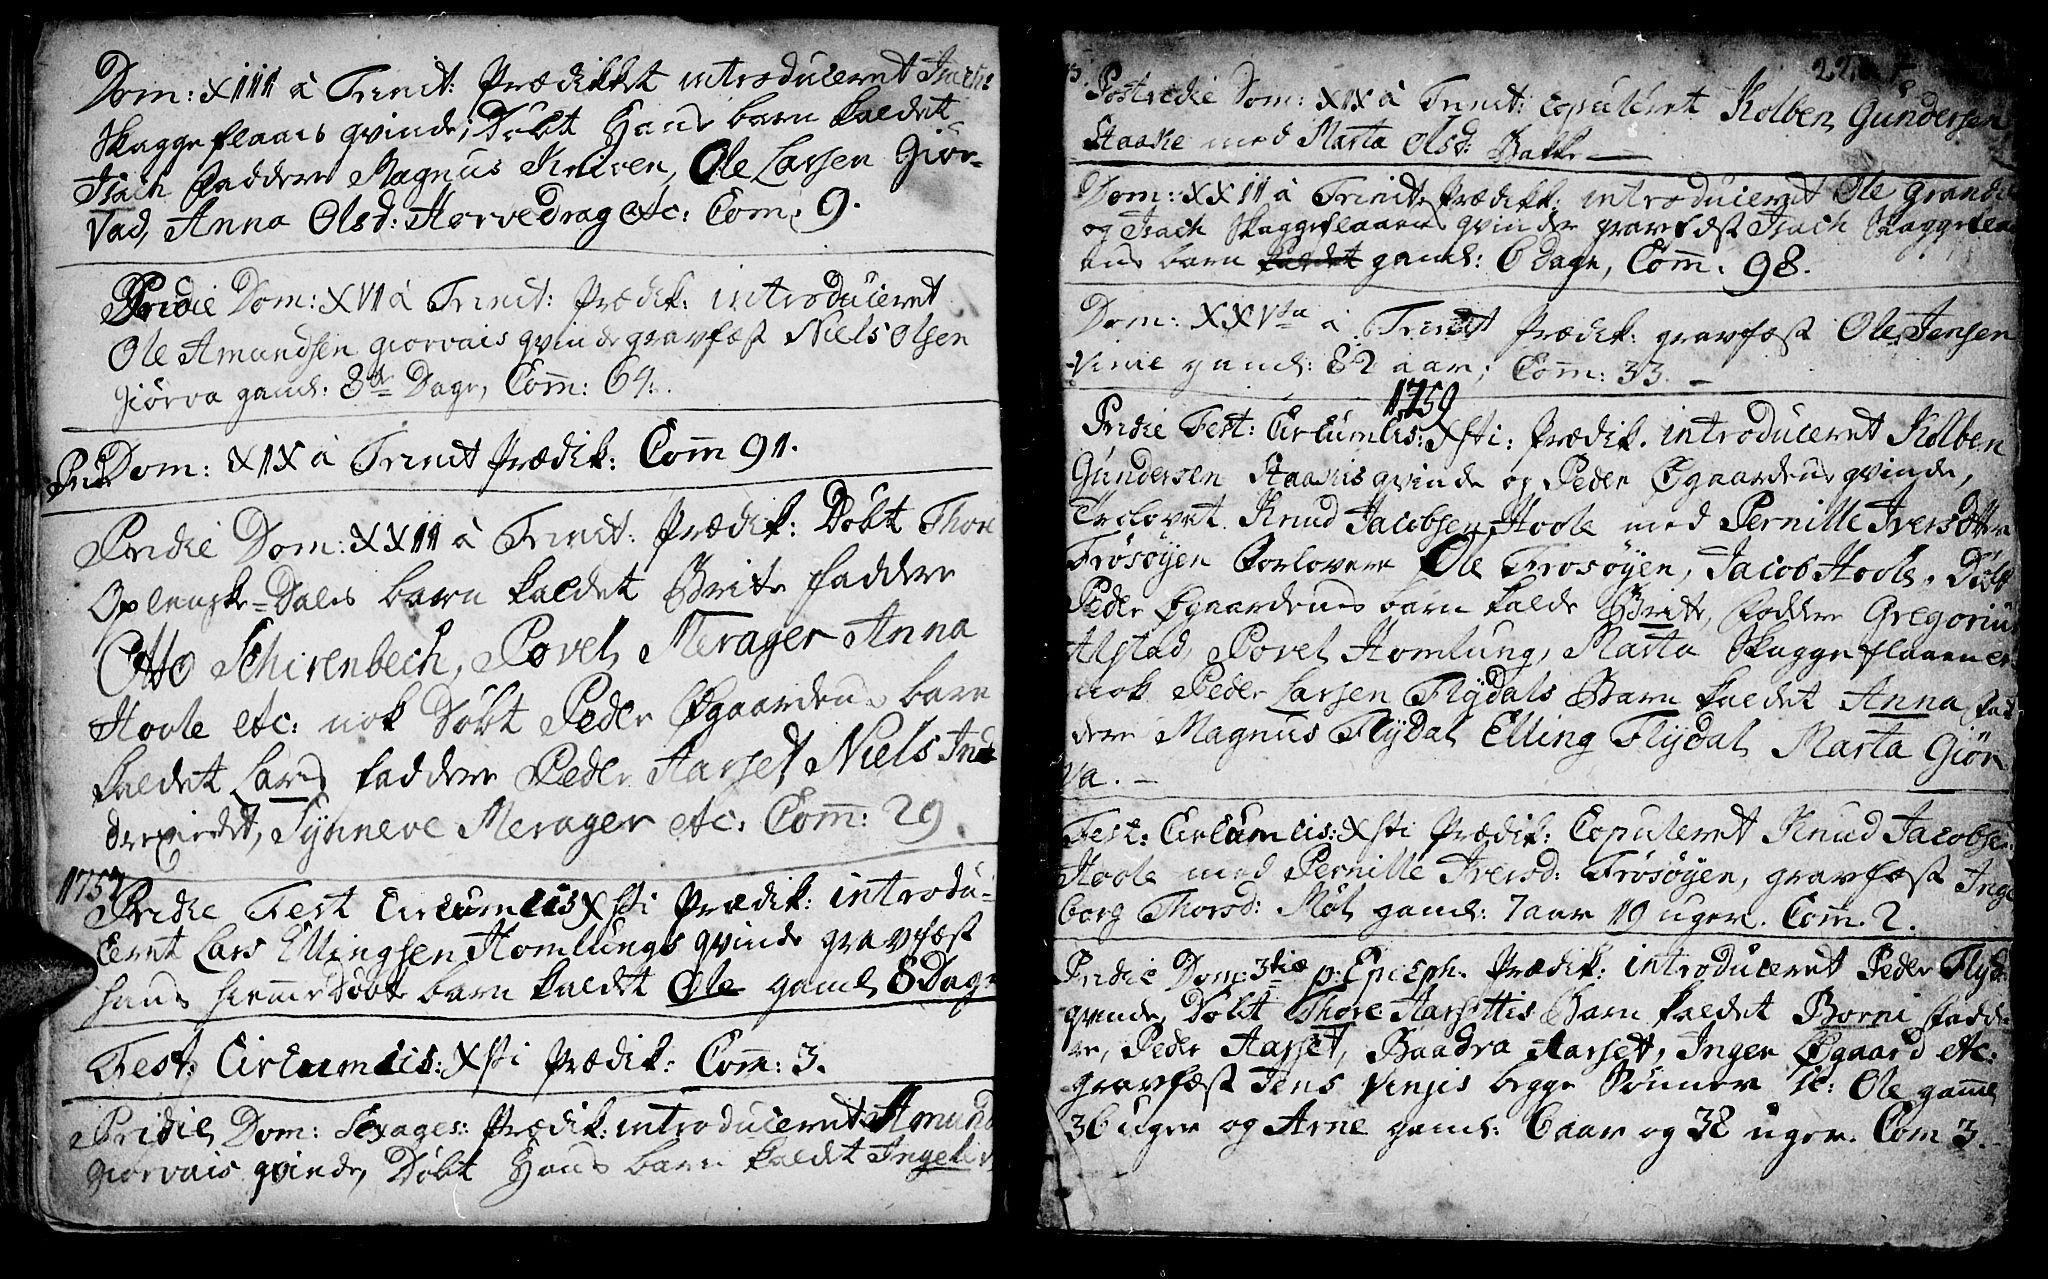 Dom: XIIII à Trinit: Prædikket introduceret Isachs
Skaggeflaaes qvinde, Döbt Hans barn kaldet
Isach Faddere Magnus Kniven, Ole Larsen Giør-
vad, Anna Olsd: Horvedrag etc: Com: 9.
Pridie Dom: XVII à Trinit: Prædik: introduceret
Ole Amundsen giorvais qvinde gravfæst Niels Olsen
Giörva gaml: 8te Dage, Com̄: 64.
Prid: Dom: XIX à Trinit Prædik: Com̄ 91.
Pridie Dom: XXIII à Trinit: Prædik: Döbt Thore
Oplenske-Dals barn kaldet Brite faddere
Otto Schirenbech, Povel Merager Anna
Hoole etc: nok Döbt Peder Øgaardens barn
kaldet Lars faddere Peder Aarset Niels Ind
dervirdet, Synneve Merager etc: Com̄: 29.
1757
Pridie Fest Circumcis Xsti Prædik: introdu-
ceret Lars Ellingsen Homlungs qvinde gravfæst
hans hiemmedöbte barn kaldet Ole gaml 8 Dage
Fest: Circumcis: Xsti Prædik: Com̄: 3.
Pridie Dom: Sexages: Prædik: introduceret Amund
Giorvais qvinde, Döbt Hans barn kaldet Ingeb
22
Postridie Dom: XIX à Trinit: Copuleret Kolben Gundersen
Staake med Marta Olsd: Bakke
Dom: XXIII à Trinit: Prædik: introduceret Ole Grande
og Isach Skaggeflaaens qvinder gravfæst Isach Skaggefla
ens barn kaldet gaml: 6 Dage, Com̄: 98.
Dom: XXVta à Trinit Prædik: gravfæst Ole Jensen
Vinie gaml: 82 aar; Com̄: 33.
1759
Pridie Fest: Circumcis: Xsti: Prædik. introduceret Kolben
Gundersen Staakis qvinde og Peder Øgaardens qvinde,
Trolovet Knud Jacobsen Hoole med Pernille Iversdtter
Frösöyen Forlovere Ole Frosöyen, Jacob Hoole, Döbt
Peder Øgaardens barn kalde Brite, Faddere Gregorius
Alstad, Povel Homlung, Marta Skaggeflaaen etc.
nok Peder Larsen Flydals Barn kaldet Anna, fad
dere Magnus Flydal Elling Flydal, Marta Giør
va.
Fest: Circumcis: Xsti Prædik: Copuleret Knud Jacobsen
Hoole med Pernille Iversd: Frösöyen, gravfæst Inge
borg Thorsd: Möl gaml: 7 aar 19 uger. Com̄. 2.
Pridie Dom: 3tiæ p: Epiph. Prædik: introduceret Peder Flyd
qvinde, Döbt Thore Aarsettis Barn kaldet Borni fadde
re, Peder Aarset, Baadra Aarset, Inger Øgaard etc:
gravfæst Jens Vinjis begge Sönner sc: Ole gaml
36 uger og Arne gaml: 6 aar og 38 uger. Com 3.